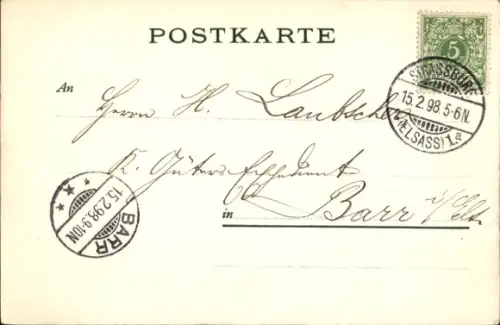 POSTKARTE
5
STRASSBURG
15.2.98.5-6N.
(ELSASS) 1.a
An
Herrn H. Laubscher
K. Güters Expedient
in Barr i/Els.
BARR
15.2.98.9-10N